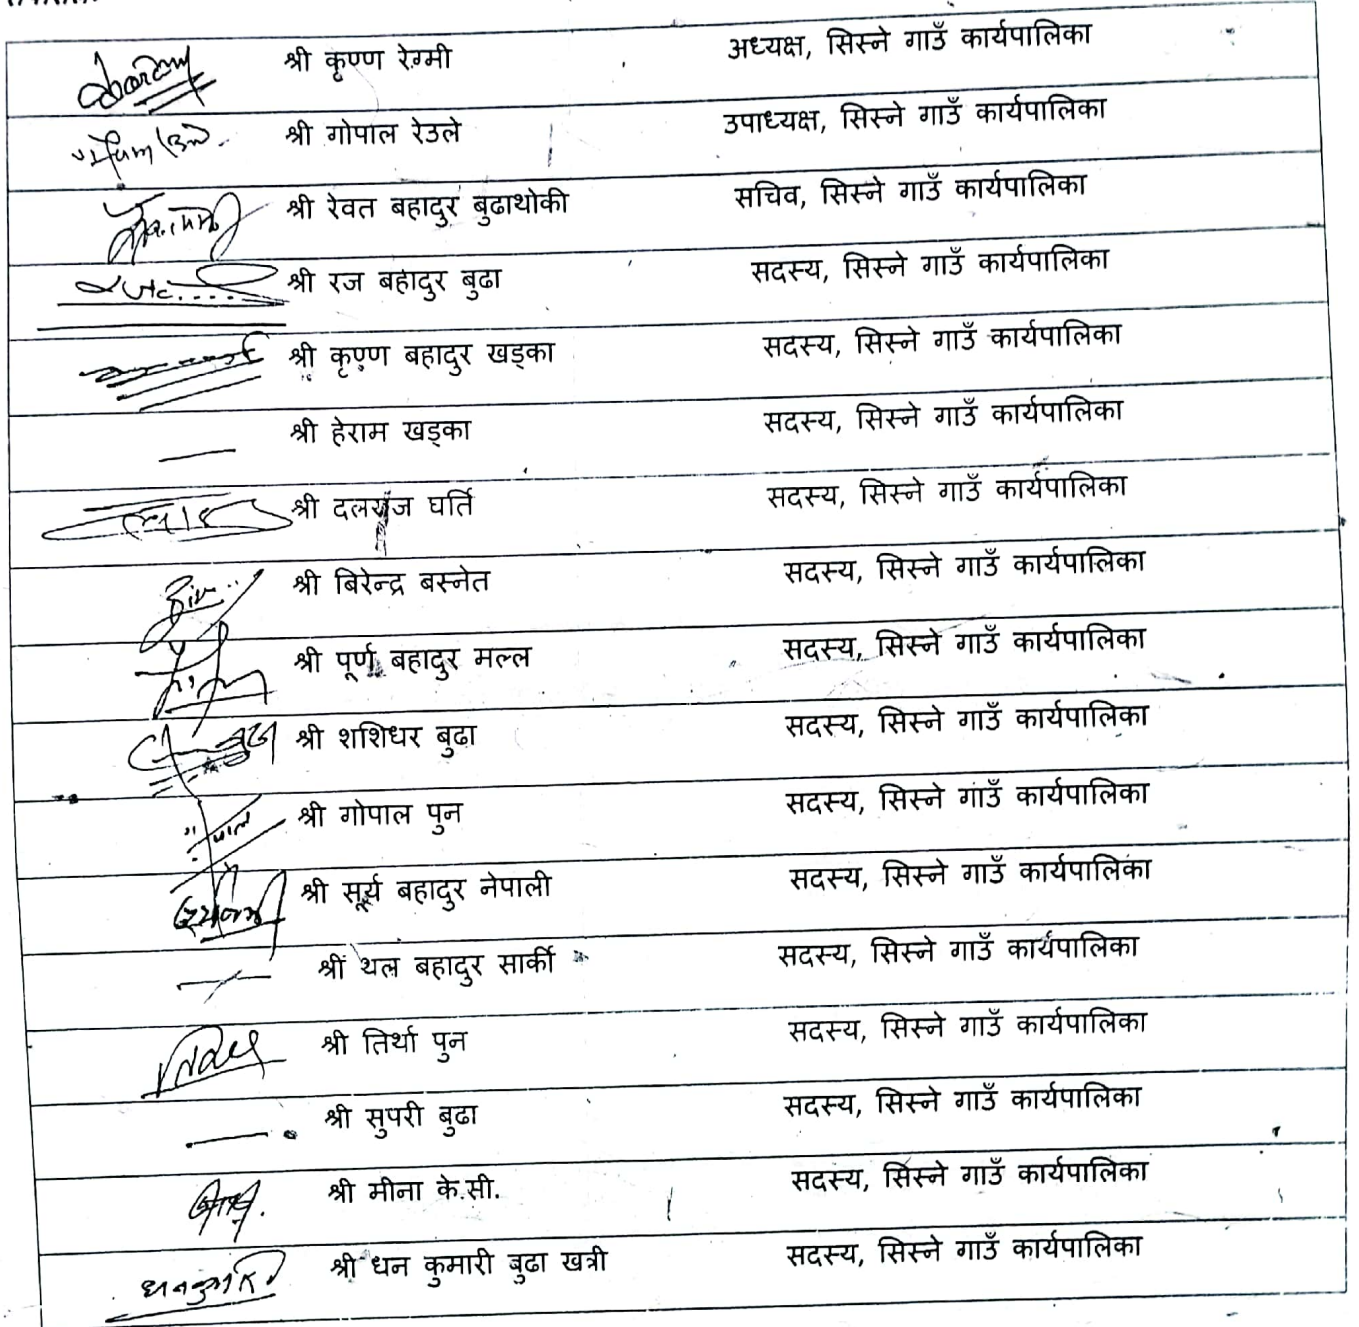 श्री कृष्ण रेग्मी अध्यक्ष, सिस्ने गाउँ कार्यपालिका
श्री गोपाल रेउले उपाध्यक्ष, सिस्ने गाउँ कार्यपालिका
श्री रेवत बहादुर बुढाथोकी सचिव, सिस्ने गाउँ कार्यपालिका
श्री रज बहादुर बुढा सदस्य, सिस्ने गाउँ कार्यपालिका
श्री कृष्ण बहादुर खड्का सदस्य, सिस्ने गाउँ कार्यपालिका
श्री हेराम खड्का सदस्य, सिस्ने गाउँ कार्यपालिका
श्री दलराज घर्ति सदस्य, सिस्ने गाउँ कार्यपालिका
श्री बिरेन्द्र बस्नेत सदस्य, सिस्ने गाउँ कार्यपालिका
श्री पूर्ण बहादुर मल्ल सदस्य, सिस्ने गाउँ कार्यपालिका
श्री शशिधर बुढा सदस्य, सिस्ने गाउँ कार्यपालिका
श्री गोपाल पुन सदस्य, सिस्ने गाउँ कार्यपालिका
श्री सूर्य बहादुर नेपाली सदस्य, सिस्ने गाउँ कार्यपालिका
श्री थल बहादुर सार्की सदस्य, सिस्ने गाउँ कार्यपालिका
श्री तिर्था पुन सदस्य, सिस्ने गाउँ कार्यपालिका
श्री सुपरी बुढा सदस्य, सिस्ने गाउँ कार्यपालिका
श्री मीना के.सी. सदस्य, सिस्ने गाउँ कार्यपालिका
धनकुमारी श्री धन कुमारी बुढा खत्री सदस्य, सिस्ने गाउँ कार्यपालिका